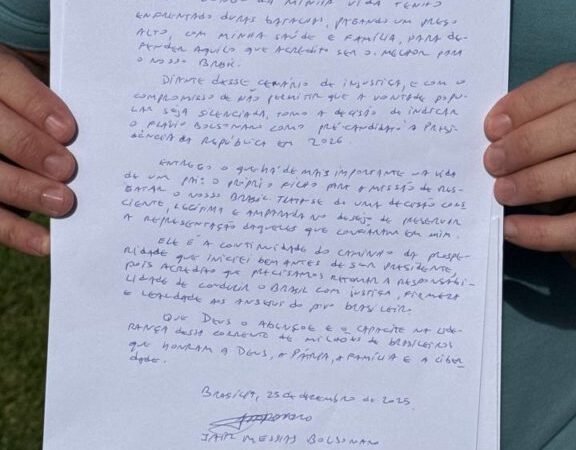 LONGO DA MINHA VIDA TENHO
ENFRENTADO DURAS BATALHAS, PAGANDO UM PREÇO
ALTO, COM MINHA SAÚDE E FAMÍLIA, PARA DE-
FENDER AQUILO QUE ACREDITO SER O MELHOR PARA
O NOSSO BRASIL.
DIANTE DESSE CENÁRIO DE INJUSTIÇA, E COM O
COMPROMISSO DE NÃO PERMITIR QUE A VONTADE POPU-
LAR SEJA SILENCIADA, TOMO A DECISÃO DE INDICAR
O FLÁVIO BOLSONARO COMO PRÉ-CANDIDATO À PRESI-
DÊNCIA DA REPÚBLICA EM 2026.
ENTREGO O QUE HÁ DE MAIS IMPORTANTE NA VIDA
DE UM PAI: O PRÓPRIO FILHO PARA A MISSÃO DE RES-
GATAR O NOSSO BRASIL. TRATA-SE DE UMA DECISÃO CONS-
CIENTE, LEGÍTIMA E AMPARADA NO DESEJO DE PRESERVAR
A REPRESENTAÇÃO DAQUELES QUE CONFIARAM EM MIM.
ELE É A CONTINUIDADE DO CAMINHO DA PROSPE-
RIDADE QUE INICIEI BEM ANTES DE SER PRESIDENTE,
POIS ACREDITO QUE PRECISAMOS RETOMAR A RESPONSABI-
LIDADE DE CONDUZIR O BRASIL COM JUSTIÇA, FIRMEZA
E LEALDADE AOS ANSEIOS DO POVO BRASILEIRO.
QUE DEUS O ABENÇOE E O CAPACITE NA LIDE-
RANÇA DESSA CORRENTE DE MILHÕES DE BRASILEIROS
QUE HONRAM A DEUS, A PÁTRIA, A FAMÍLIA E A LIBER-
DADE.
BRASÍLIA, 25 de dezembro de 2025.
JAIR MESSIAS BOLSONARO